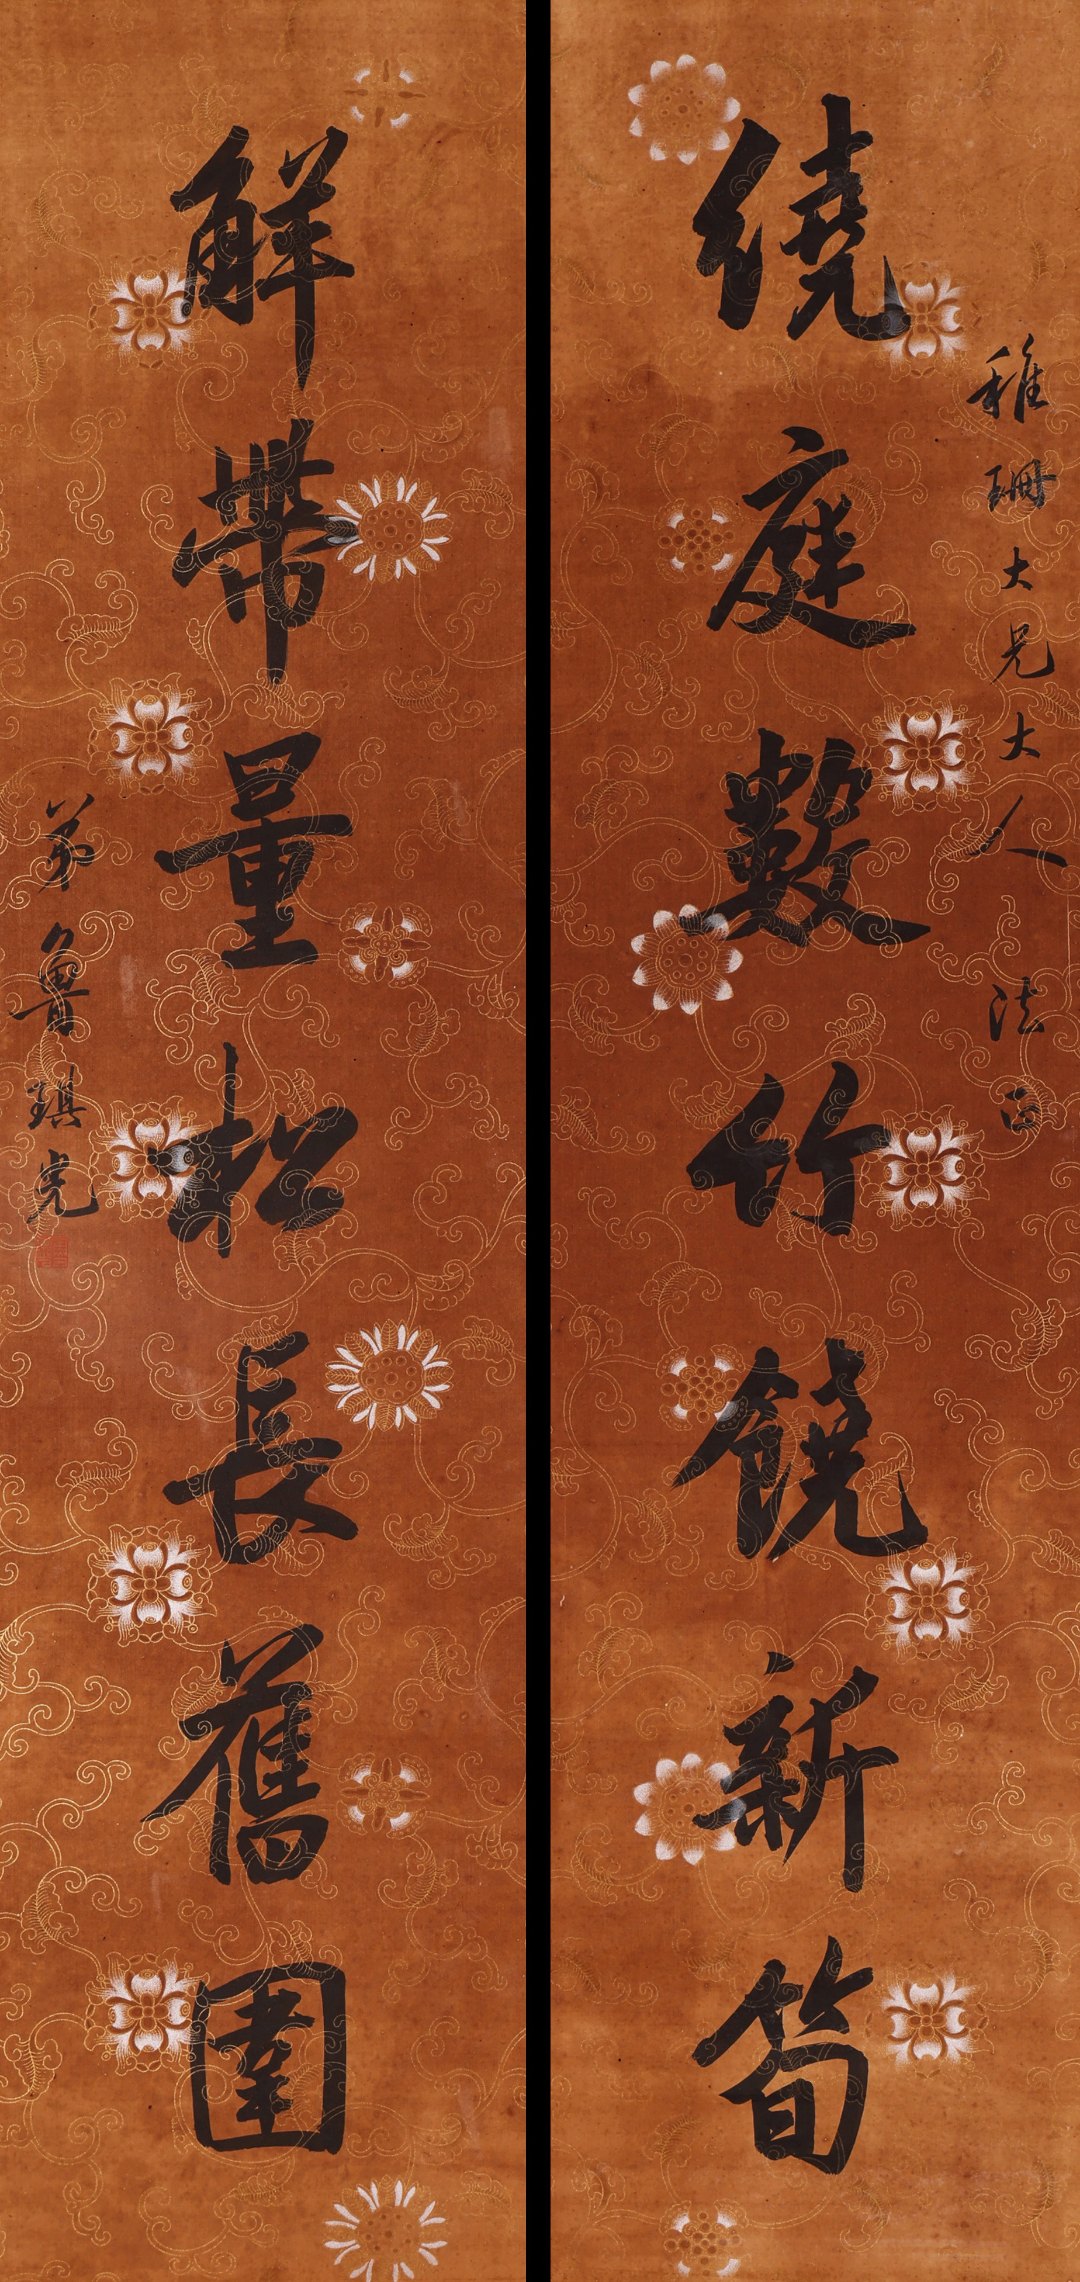 稚珊大兄大人法正
繞庭數竹饒新筍
解帶量松長舊圍
弟魯琪光